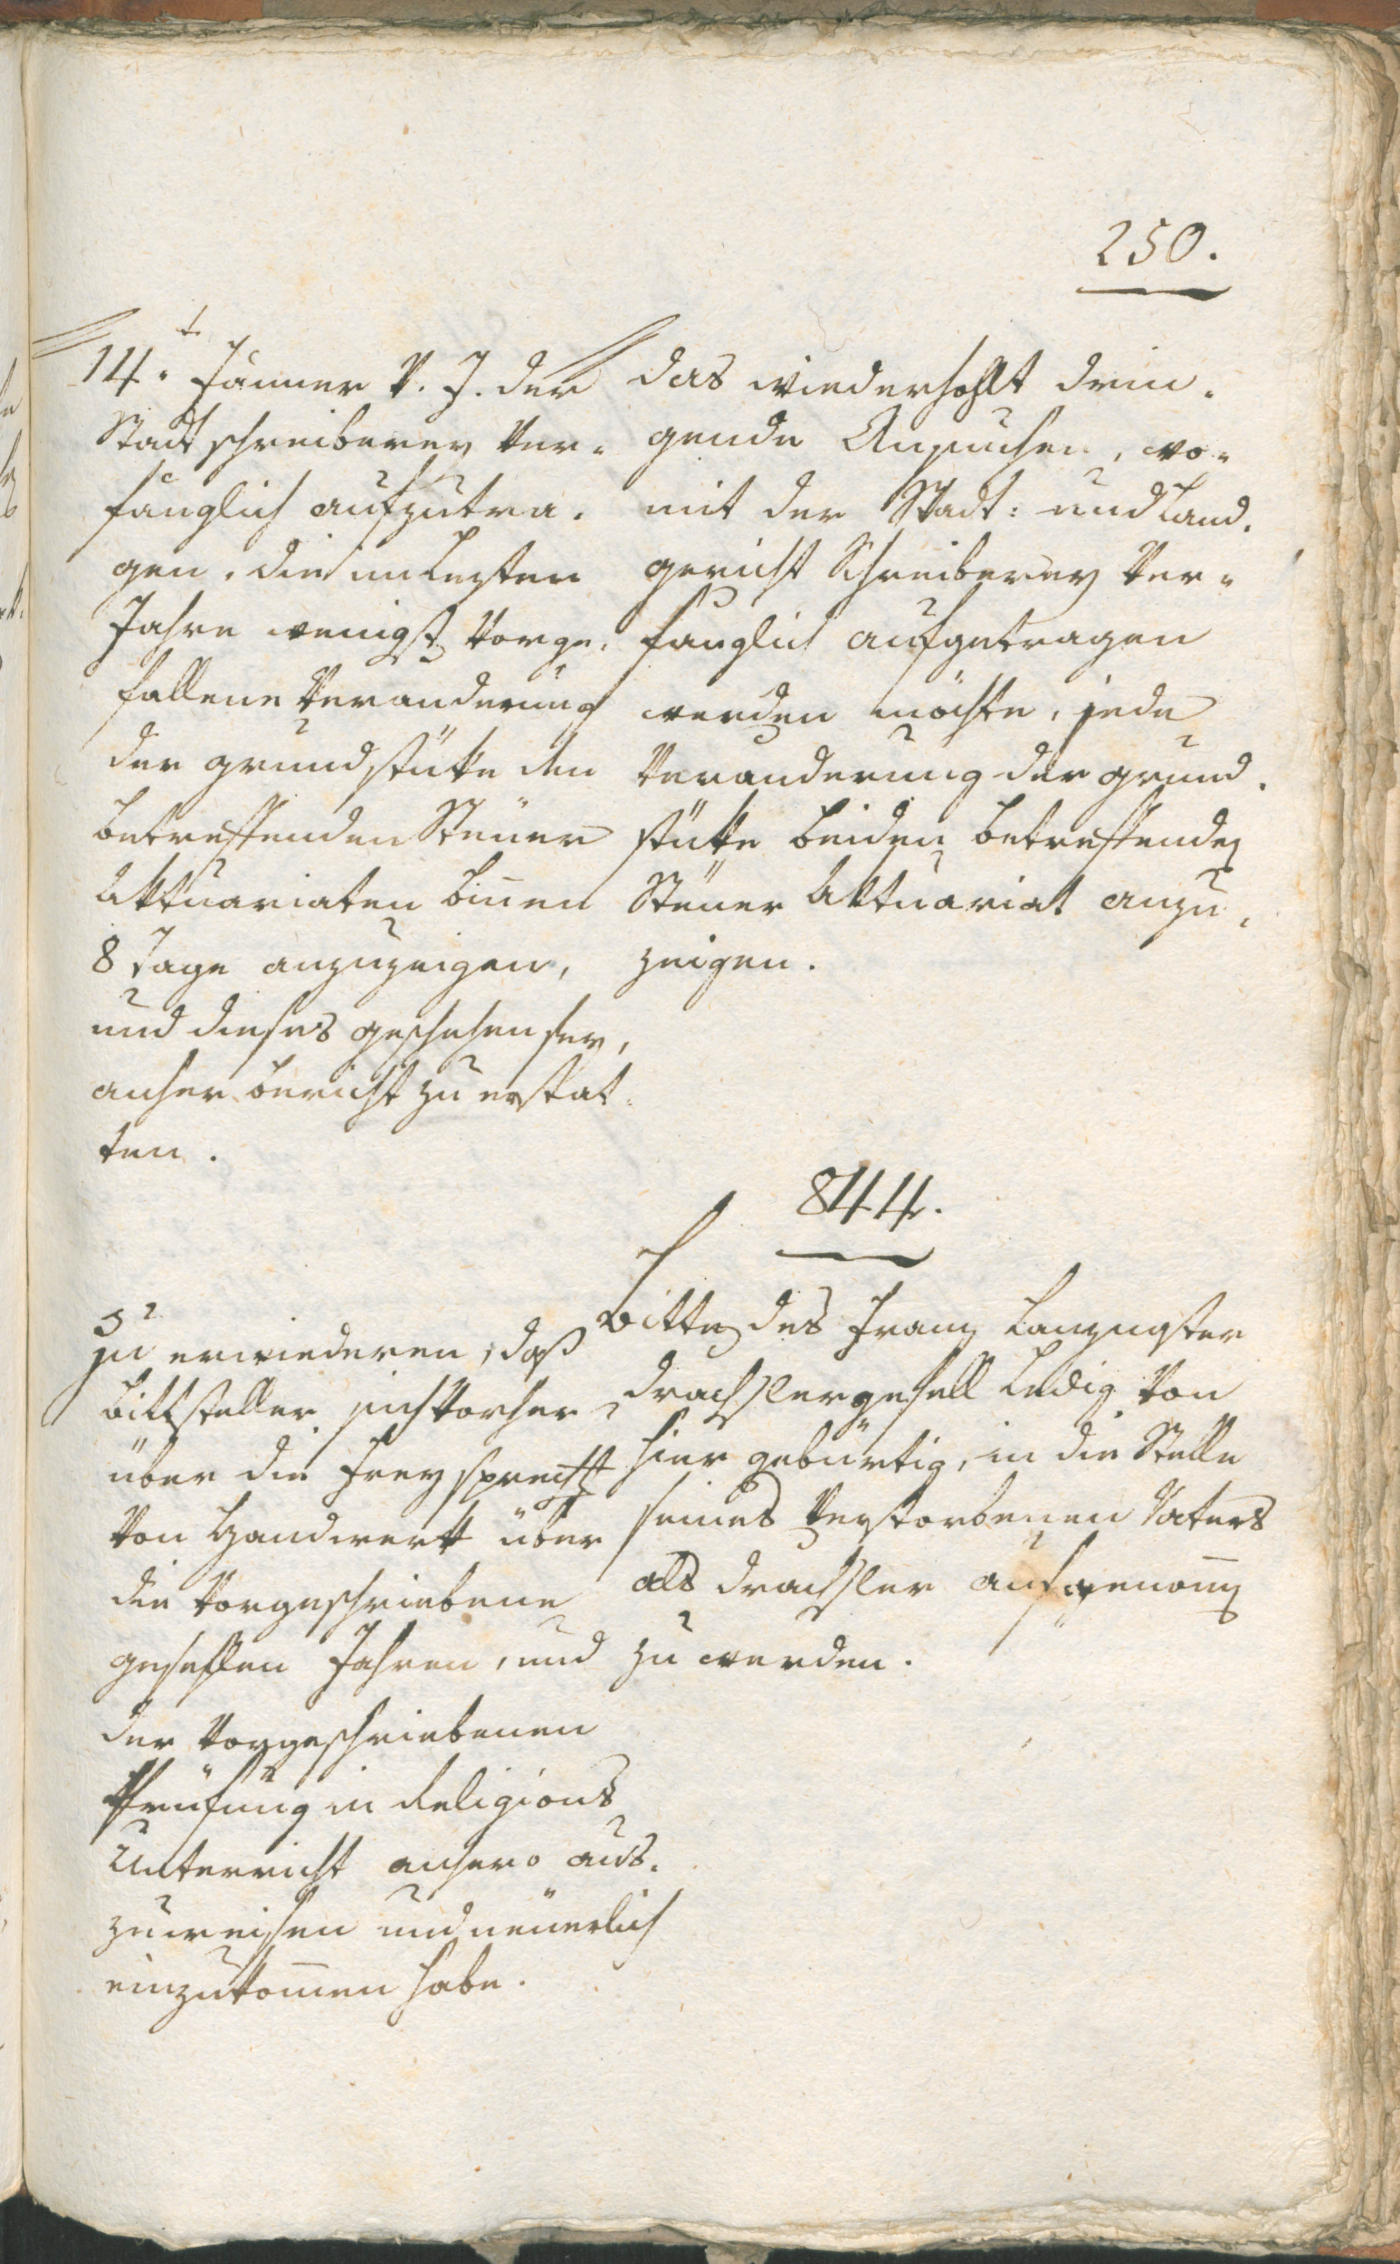 250.
14t. Jänner v. J. der
Stadtschreiberey ver¬
fänglich aufzutra¬
gen, die im lezten
Jahre wenigst vorge¬
fallene Veränderung
der grundstüke den
betreffenden Steüer
Aktuariaten binnen
8 Tage anzuzeigen,
und dieses geschehen sey,
anher bericht zu erstat¬
ten.
das wiederhohlt drin¬
gende Ansuchen, wo¬
mit der Stadt: und Land¬
gericht Schreiberey ver¬
fänglich aufgetragen
werden möchte, jede
Veränderung der grund¬
stüke bei den betreffenden
Steüer Aktuariat anzu¬
zeigen.
844.
Zu erwiederen, daß
bittsteller sich vorher
über die Freysprech
von Handwerk über
die vorgeschriebene
gesellen Jahren, und
der vorgeschriebenen
Prüfung in Religions
Unterricht anhero aus¬
zuweisen und neüerlich
einzukommen habe.
Bitte des Franz
Drachslergesell ledig von
hier gebürtig, in die Stelle
seines verstorbenen Vaters
als Drachsler aufgenommen
zu werden.